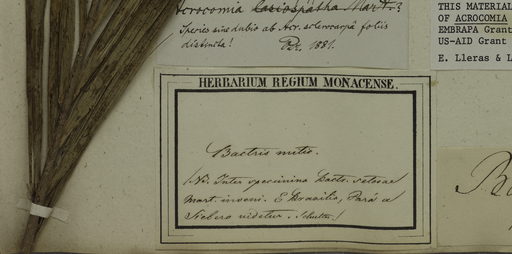 Acrocomia lasiospatha Mart.?
Species sine dubio ab Acr. sclerocarpa foliis
distincta!
Dr. 1881.
THIS MATERIAL
OF ACROCOMIA
EMBRAPA Grant
US-AID Grant
E. Lleras & L
HERBARIUM REGIUM MONACENSE.
Bactris mitis.
NB. Inter specimina Bactr. setosae
Mart. inveni. E Brasilia, Pará a
Siebero videtur. Schultes!
Ba